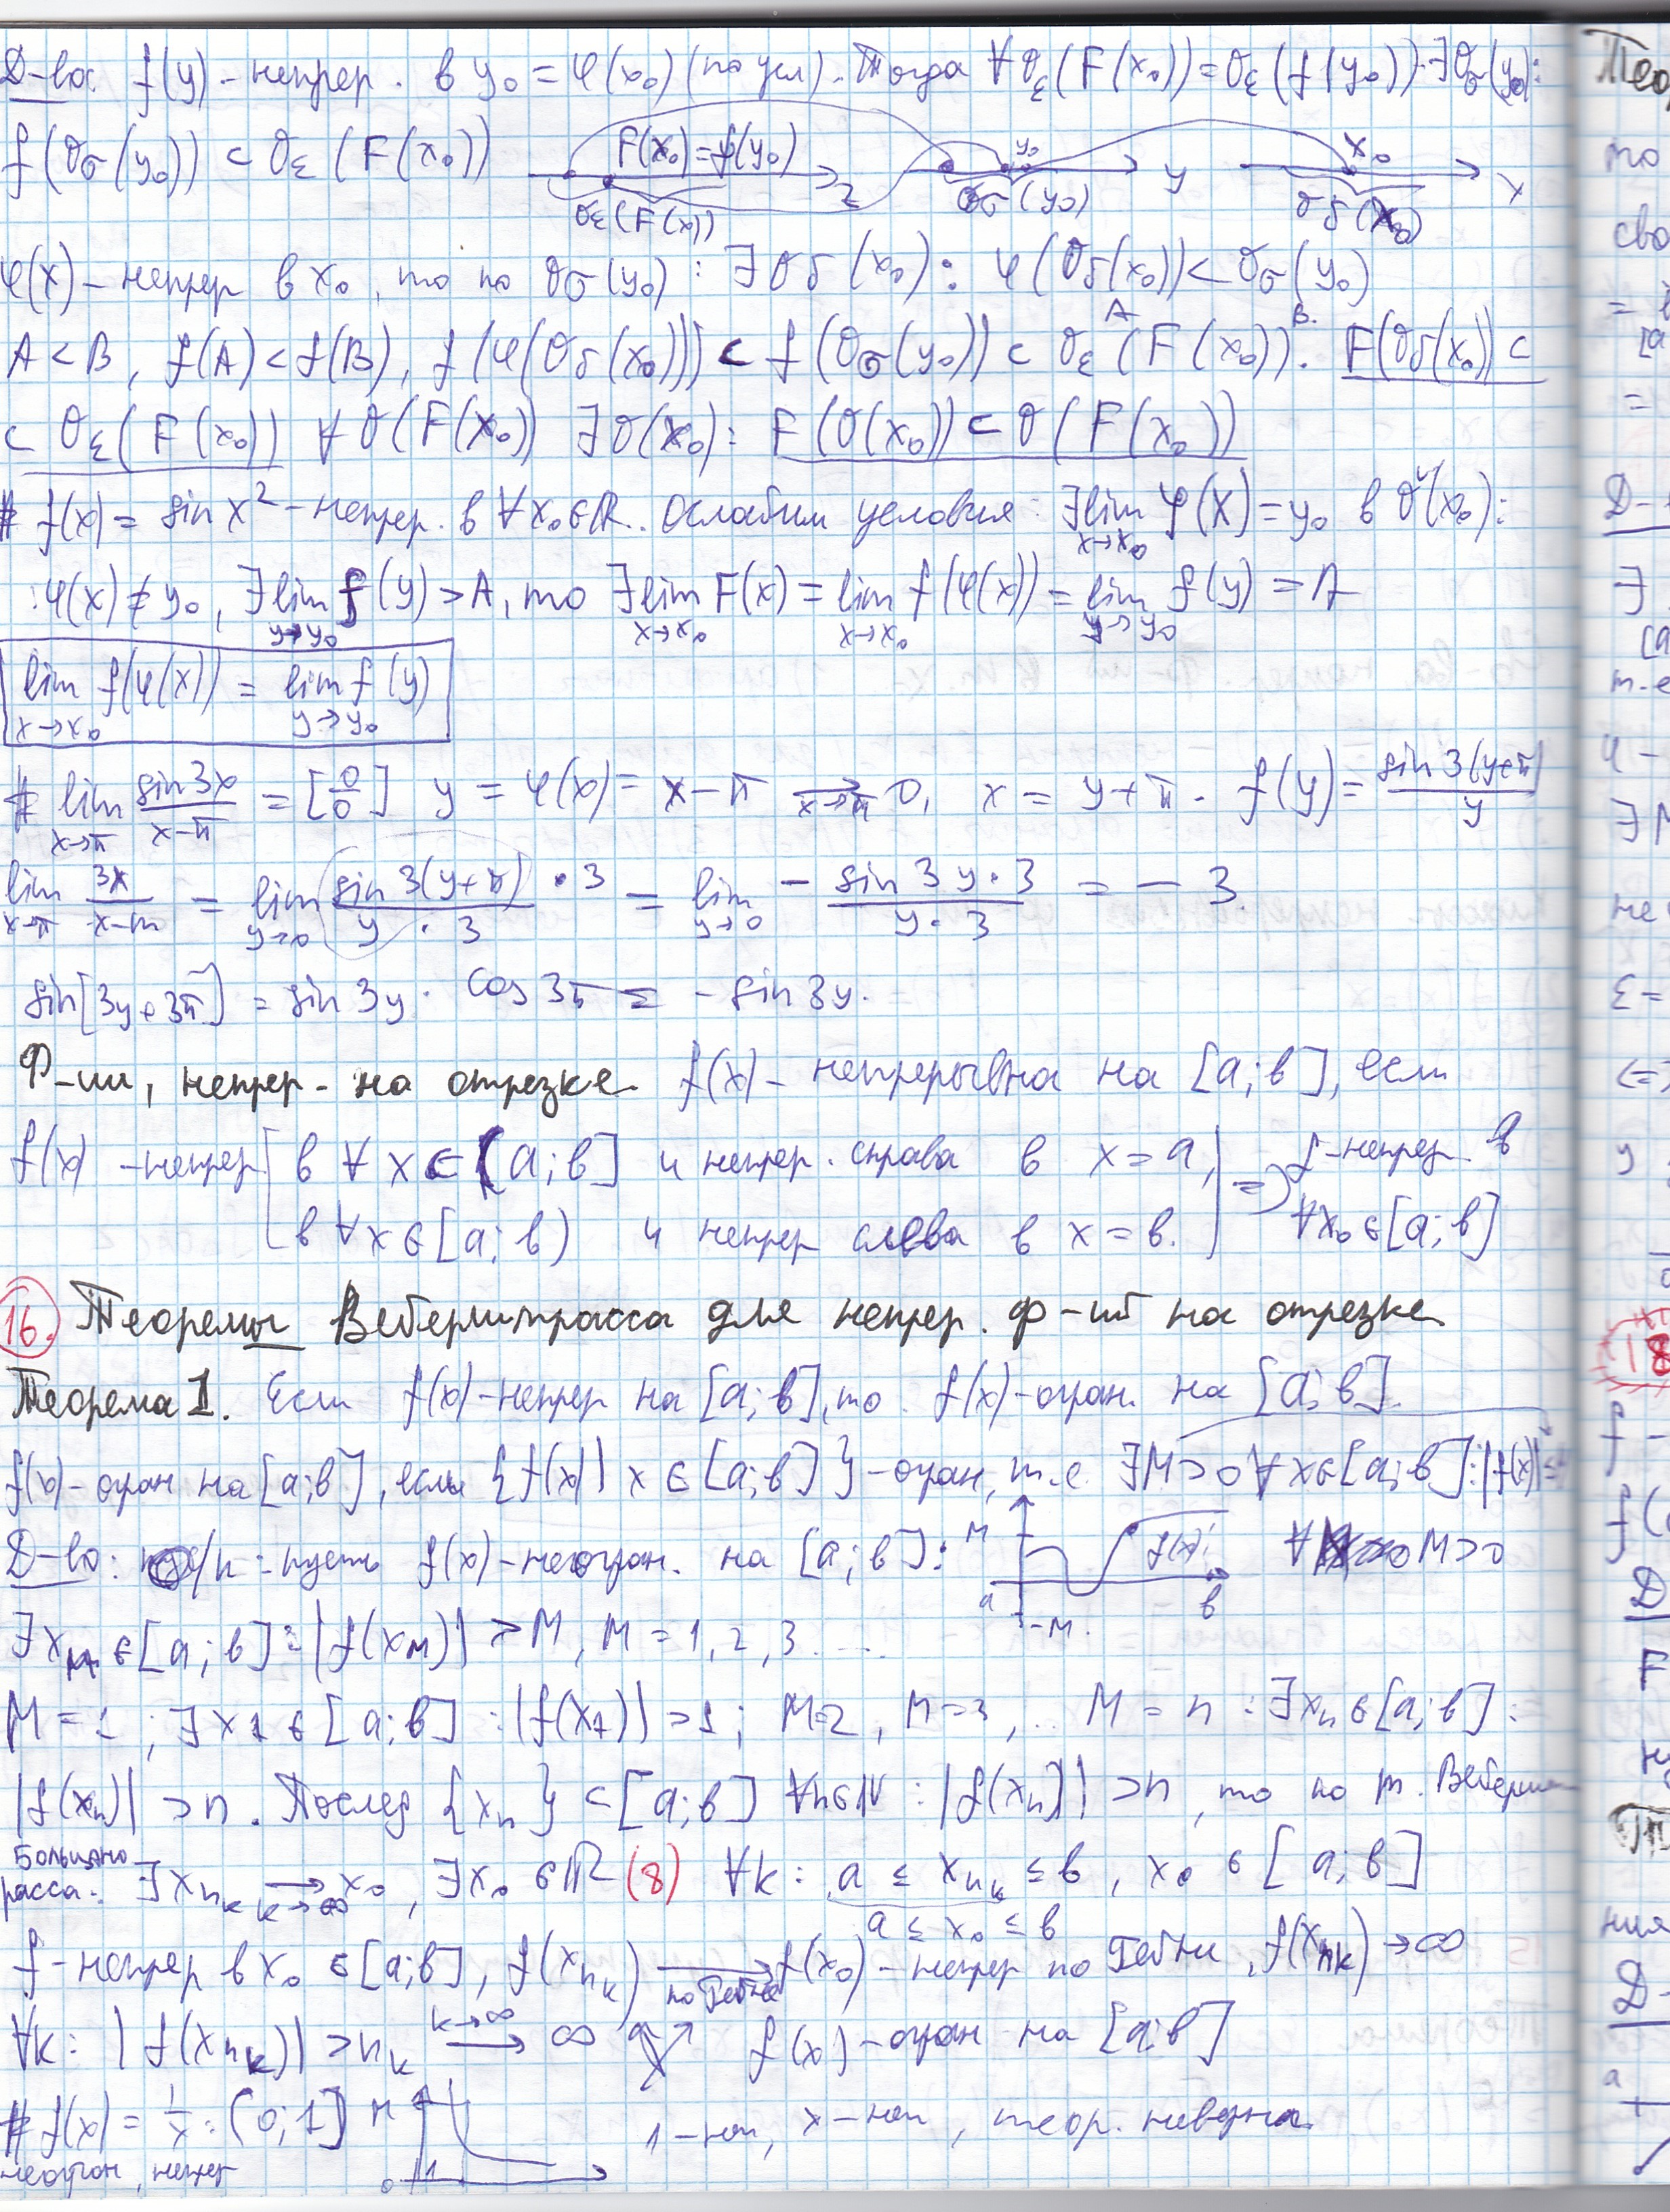 Д-во: f(y) - непрер. в y₀ = φ(x₀) (по усл). Тогда ∀ O_ε(F(x₀)) = O_ε(f(y₀)) ∃ O_σ(y₀):
f(O_σ(y₀)) ⊂ O_ε(F(x₀)) F(x₀) = f(y₀) O_ε(F(x₀)) z y₀ O_σ(y₀) y x₀ O_δ(x₀) x
φ(x) - непрер в x₀, то по O_σ(y₀): ∃ O_δ(x₀): φ(O_δ(x₀)) ⊂ O_σ(y₀)
A B.
A ⊂ B, f(A) ⊂ f(B), f(φ(O_δ(x₀))) ⊂ f(O_σ(y₀)) ⊂ O_ε(F(x₀)). F(O_δ(x₀)) ⊂
⊂ O_ε(F(x₀)) ∀ O(F(x₀)) ∃ O(x₀): F(O(x₀)) ⊂ O(F(x₀))
# f(x) = sin x² - непрер. в ∀x₀∈R. Ослабим условия: ∃ lim_{x→x₀} φ(x) = y₀ в Ǒ(x₀):
: φ(x) ≠ y₀, ∃ lim_{y→y₀} f(y) = A, то ∃ lim_{x→x₀} F(x) = lim_{x→x₀} f(φ(x)) = lim_{y→y₀} f(y) = A
lim_{x→x₀} f(φ(x)) = lim_{y→y₀} f(y)
# lim_{x→π} sin3x/(x-π) = [0/0] y = φ(x) = x - π →_{x→π} 0, x = y + π. f(y) = sin3(y+π)/y
lim_{x→π} 3x/(x-π) = lim_{y→0} sin3(y+π)/(y·3) · 3 = lim_{y→0} - (sin3y·3)/(y·3) = - 3.
sin[3y+3π] = sin3y · cos3π = - sin3y.
Ф-ии, непрер. на отрезке. f(x) - непрерывна на [a;в], если
f(x) - непрер [ в ∀ x ∈ (a;в] и непрер. справа в x = a, ⇒ f - непрер. в
в ∀x∈[a;в) и непрер слева в x = в. ∀x₀∈[a;в]
16. Теоремы Вейерштрасса для непрер. ф-ий на отрезке
Теорема 1. Если f(x) - непрер на [a;в], то f(x) - огран. на [a;в].
f(x) - огран на [a;в], если {f(x)| x∈[a;в]} - огран, т.е. ∃M>0 ∀x∈[a;в]: |f(x)|≤
Д-во: о/п: пусть f(x) - неогран. на [a;в]: M f(x) a в -M. ∀ M>0
∃x_M∈[a;в]: |f(x_M)| > M, M = 1, 2, 3 ...
M = 1; ∃x₁∈[a;в]: |f(x₁)| > 1; M=2, M=3, ... M = n: ∃xₙ∈[a;в]:
|f(xₙ)| > n. Послед {xₙ} ⊂ [a;в] ∀n∈N: |f(xₙ)| > n, то по т. Вейерш-
Больцано
расса: ∃x_{n_k} →_{k→∞} x₀, ∃x₀∈R (8) ∀k: a ≤ x_{n_k} ≤ в, x₀ ∈ [a;в]
a ≤ x₀ ≤ в
f - непрер в x₀ ∈ [a;в], f(x_{n_k}) →_{по Гейне} f(x₀) - непрер по Гейне, f(x_{n_k}) → ∞
∀k: |f(x_{n_k})| > n_k →^{k→∞} ∞ f(x) - огран на [a;в]
# f(x) = 1/x: (0;1] M 0 1 1 - неп, x - неп, теор. неверна
неогран, непрер